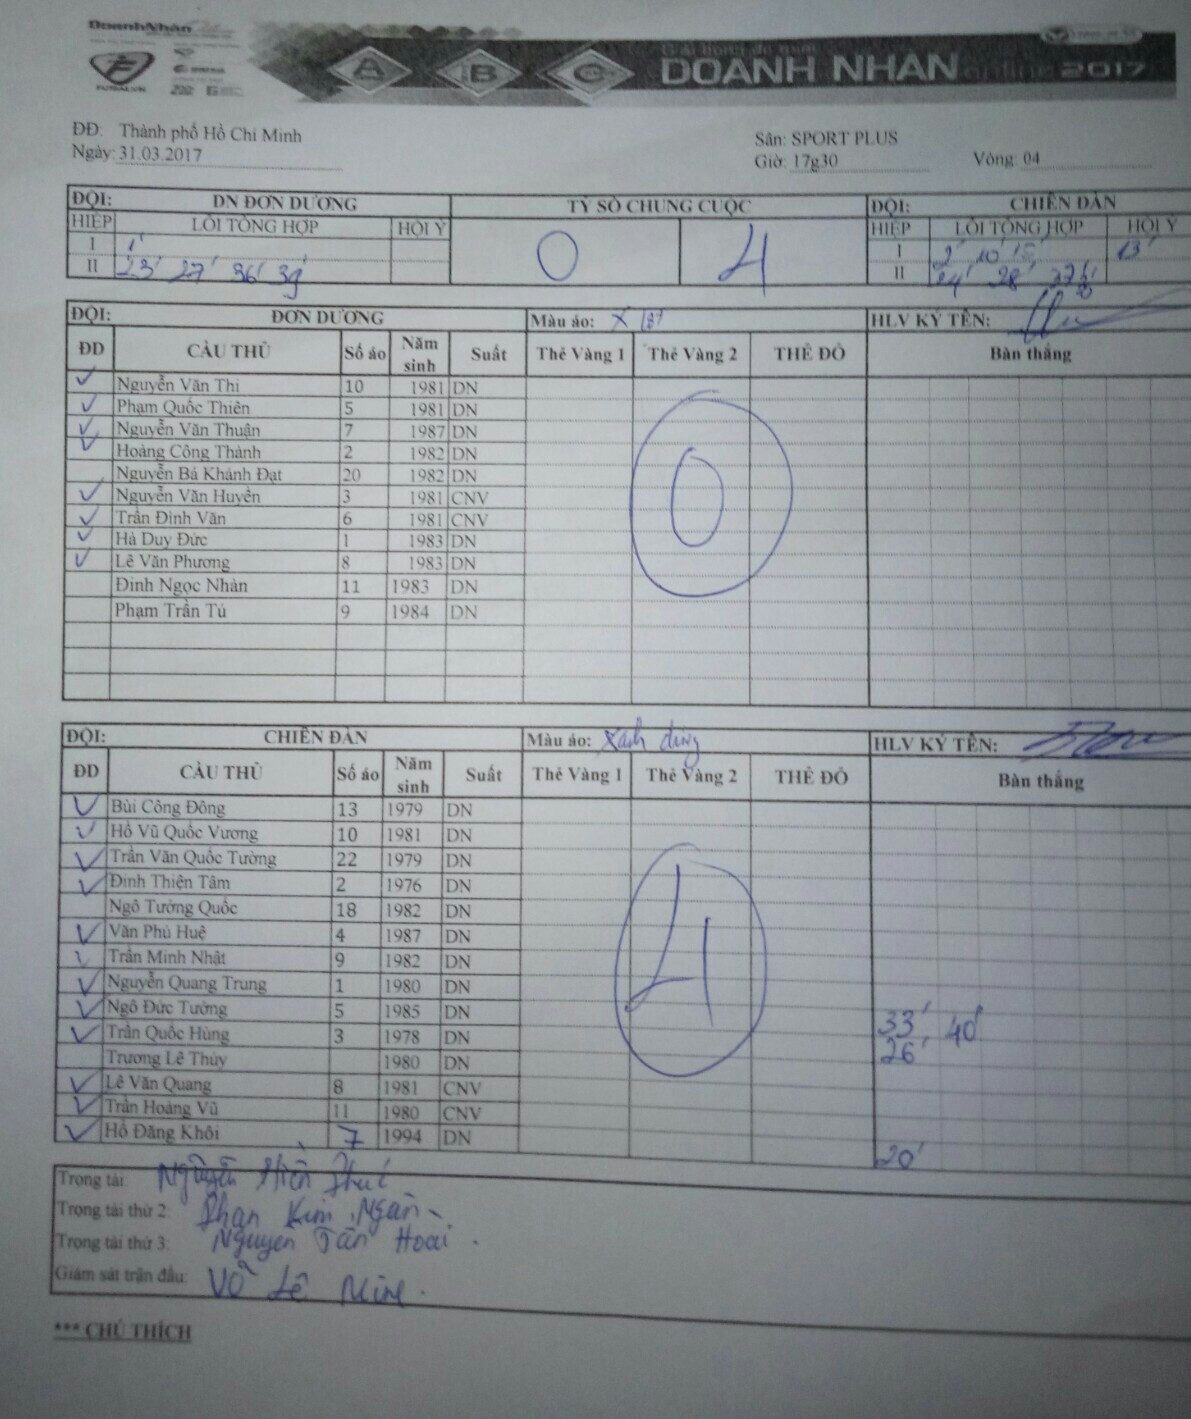 DoanhNhân
A B C
DOANH NHAN online 2017
ĐĐ: Thành phố Hồ Chí Minh
Sân: SPORT PLUS
Ngày: 31.03.2017
Giờ: 17g30 Vòng: 04
ĐỘI: DN ĐƠN DƯƠNG TỶ SỐ CHUNG CUỘC ĐỘI: CHIẾN ĐÀN
HIỆP LỖI TỔNG HỢP HỘI Ý 0 4 HIỆP LỖI TỔNG HỢP HỘI Ý
I 1' I 2' 10' 15' 13'
II 23' 27' 36' 39' II 24' 28'
ĐỘI: ĐƠN DƯƠNG Màu áo: HLV KÝ TÊN:
ĐD CẦU THỦ Số áo Năm sinh Suất Thẻ Vàng 1 Thẻ Vàng 2 THẺ ĐỎ Bàn thắng
Nguyễn Văn Thi 10 1981 DN
Phạm Quốc Thiên 5 1981 DN
Nguyễn Văn Thuận 7 1987 DN
Hoàng Công Thành 2 1982 DN
Nguyễn Bá Khánh Đạt 20 1982 DN
Nguyễn Văn Huyền 3 1981 CNV
Trần Đình Văn 6 1981 CNV
Hà Duy Đức 1 1983 DN
Lê Văn Phương 8 1983 DN
Đinh Ngọc Nhàn 11 1983 DN
Phạm Trần Tú 9 1984 DN
0
ĐỘI: CHIẾN ĐÀN Màu áo: Xanh dương HLV KÝ TÊN:
ĐD CẦU THỦ Số áo Năm sinh Suất Thẻ Vàng 1 Thẻ Vàng 2 THẺ ĐỎ Bàn thắng
Bùi Công Đông 13 1979 DN
Hồ Vũ Quốc Vương 10 1981 DN
Trần Văn Quốc Tường 22 1979 DN
Đinh Thiện Tâm 2 1976 DN
Ngô Tướng Quốc 18 1982 DN
Văn Phú Huệ 4 1987 DN
Trần Minh Nhật 9 1982 DN
4
Nguyễn Quang Trung 1 1980 DN
Ngô Đức Tưởng 5 1985 DN 33' 40'
Trần Quốc Hùng 3 1978 DN 26'
Trương Lê Thủy 1980 DN
Lê Văn Quang 8 1981 CNV
Trần Hoàng Vũ 11 1980 CNV
Hồ Đăng Khôi 7 1994 DN 20'
Trọng tài: Nguyễn Hiền
Trọng tài thứ 2: Phan Kim Ngân
Trọng tài thứ 3: Nguyễn Tấn Hoài
Giám sát trận đấu: Võ Lê Minh
*** CHÚ THÍCH